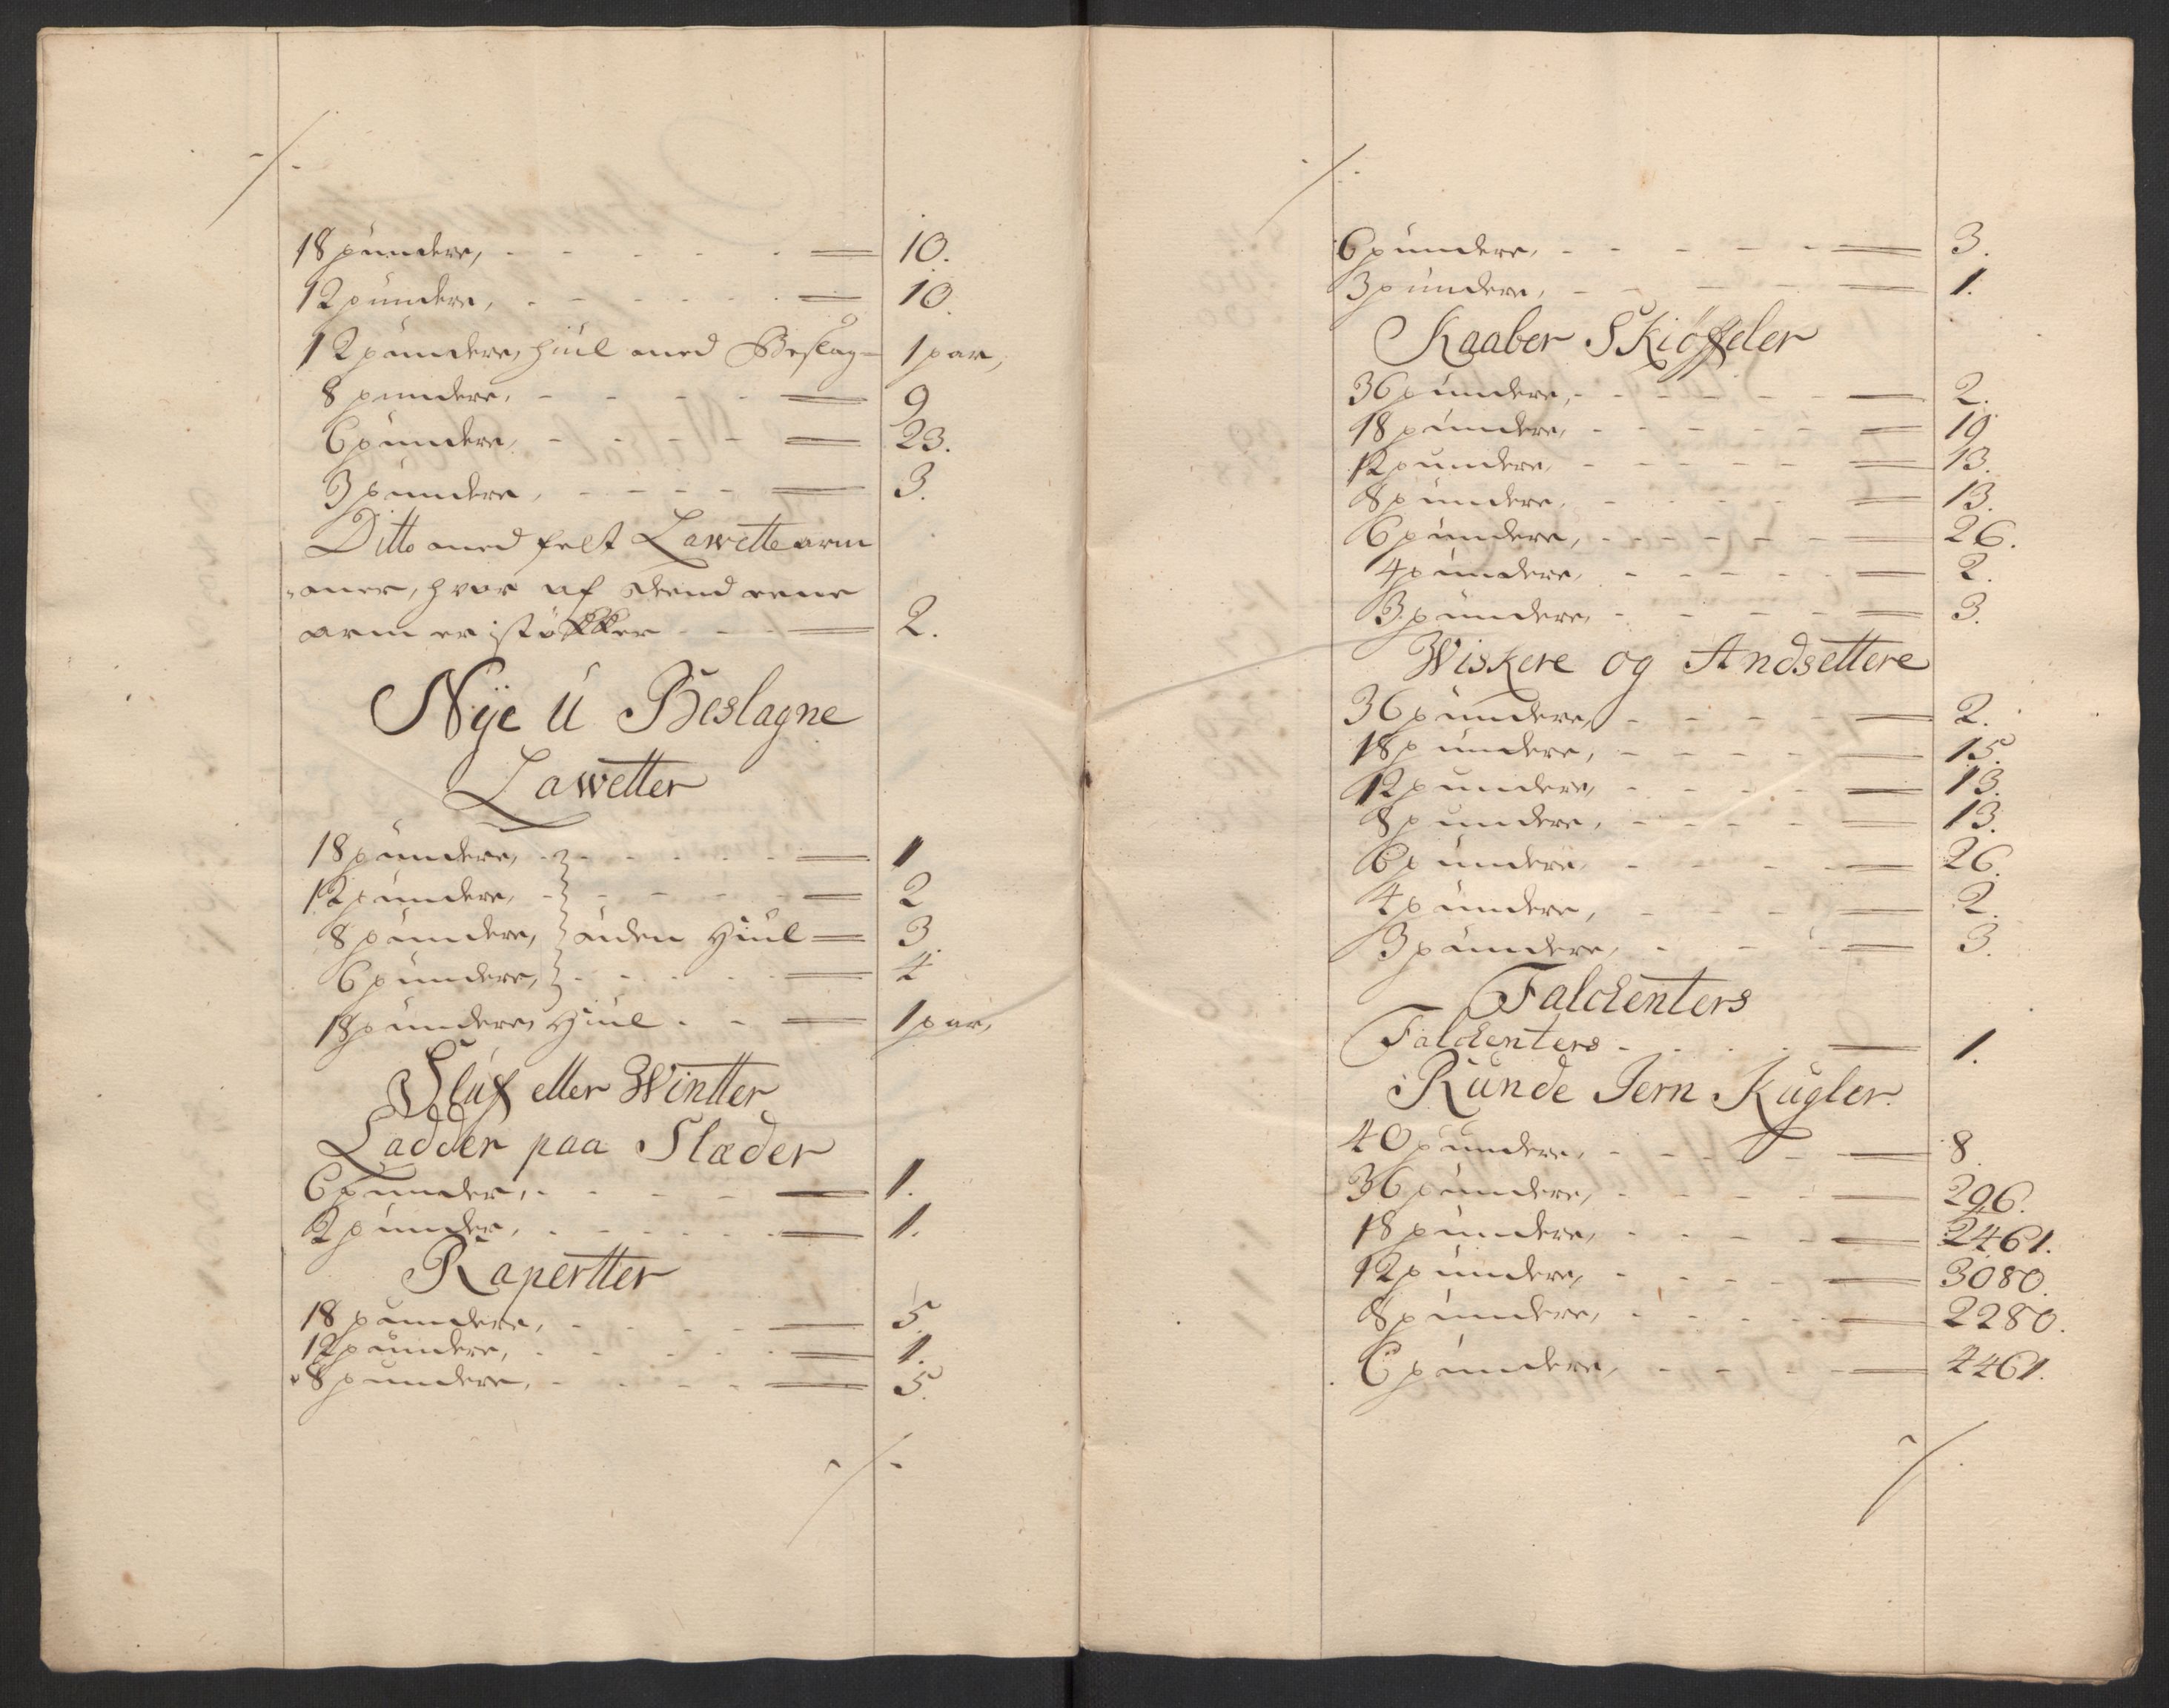 18 pündere, — 10.
12 pündere, — 10.
12 pündere, hiül med Beslag — 1 par,
8 pündere, — 9
6 pündere, — 23.
3 pündere, — 3.
Ditto med felt Lawette arm
oner, hvor af deend eene
arm er istökker — 2.
Nÿe ü Beslagne
Lawetter
18 pündere, — 1
12 pündere, — 2
8 pündere, üden Hiül — 3.
6 pündere, — 4
18 pündere, Hiül — 1 par,
Slüf eller Wintter
Ladder paa Slæder
6 pünder, — 1.
2 pünder, — 1.
Rapertter
18 pündere, — 5.
12 pündere, — 1.
8 pündere, — 5.
6 pündere, — 3.
3 pündere, — 1.
Kaaber Skiøffeler
36 pündere, — 2.
18 pündere, — 19
12 pündere, — 13.
8 pündere, — 13.
6 pündere, — 26.
4 pündere, — 2.
3 pündere, — 3.
Wiskere og Andsettere
36 pündere, — 2.
18 pündere, — 15.
12 pündere, — 13.
8 pündere, — 13.
6 pündere, — 26.
4 pündere, — 2.
3 pündere, — 3.
Falckenters
Falckenters — 1.
Runde Jern Kügler.
40 pündere, — 8.
36 pündere, — 296.
18 pündere, — 2461.
12 pündere, — 3080.
8 pündere, — 2280.
6 pündere, — 4461.